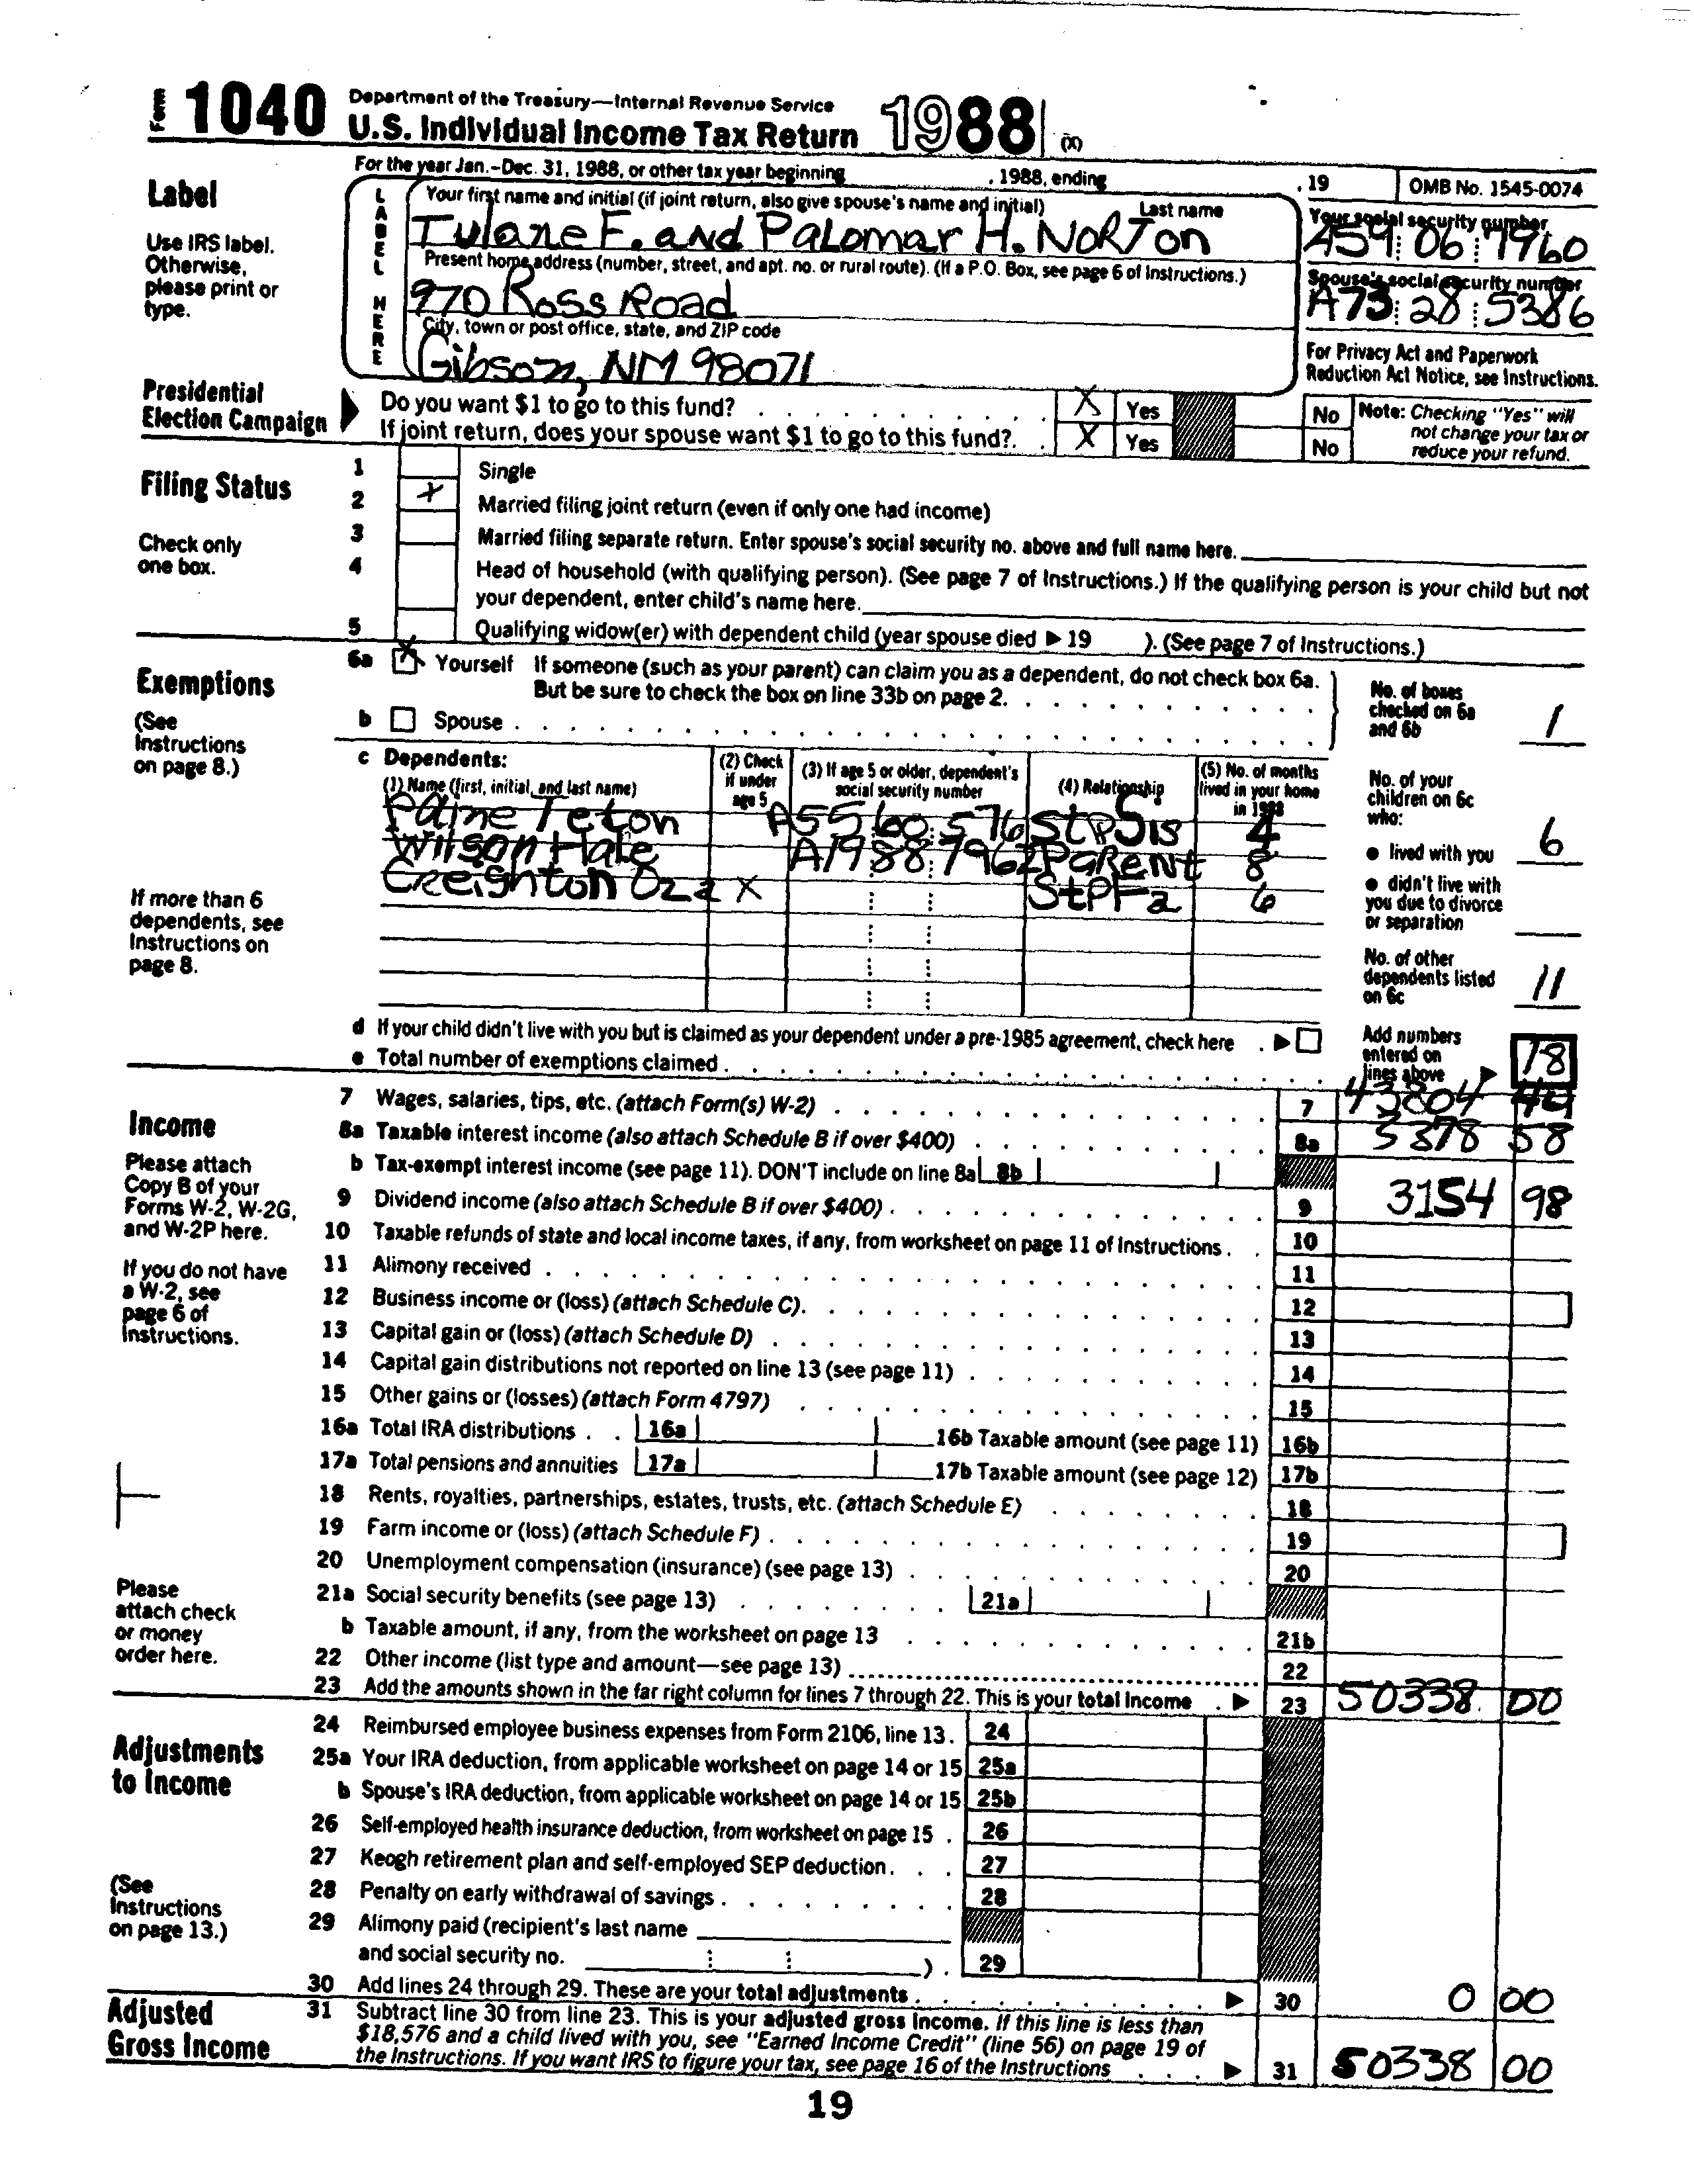 Form 1040 Department of the Treasury—Internal Revenue Service
U.S. Individual Income Tax Return 1988 (X)
For the year Jan.-Dec. 31, 1988, or other tax year beginning , 1988, ending , 19 OMB No. 1545-0074
Label
Use IRS label. Otherwise, please print or type.
LABEL HERE
Your first name and initial (if joint return, also give spouse's name and initial) Last name
Tulane F. and Palomar H. Norton
Your social security number
459 06 7960
Present home address (number, street, and apt. no. or rural route). (If a P.O. Box, see page 6 of Instructions.)
970 Ross Road
Spouse's social security number
A73 28 5386
City, town or post office, state, and ZIP code
Gibson, NM 98071
For Privacy Act and Paperwork Reduction Act Notice, see Instructions.
Presidential Election Campaign
Do you want $1 to go to this fund? X Yes No
If joint return, does your spouse want $1 to go to this fund? X Yes No
Note: Checking "Yes" will not change your tax or reduce your refund.
Filing Status
Check only one box.
1 Single
2 X Married filing joint return (even if only one had income)
3 Married filing separate return. Enter spouse's social security no. above and full name here.
4 Head of household (with qualifying person). (See page 7 of Instructions.) If the qualifying person is your child but not
your dependent, enter child's name here.
5 Qualifying widow(er) with dependent child (year spouse died ▶ 19 ). (See page 7 of Instructions.)
Exemptions
(See Instructions on page 8.)
6a X Yourself If someone (such as your parent) can claim you as a dependent, do not check box 6a.
But be sure to check the box on line 33b on page 2.
b Spouse
No. of boxes checked on 6a and 6b 1
c Dependents:
(1) Name (first, initial, and last name) (2) Check if under age 5 (3) If age 5 or older, dependent's social security number (4) Relationship (5) No. of months lived in your home in 1988
Paine Teton A55 60 576 StpSis 4
Wilson Hale A19 88 7962 Parent 8
Creighton Oza X StPFa 6
If more than 6 dependents, see Instructions on page 8.
No. of your children on 6c who:
● lived with you 6
● didn't live with you due to divorce or separation
No. of other dependents listed on 6c 11
d If your child didn't live with you but is claimed as your dependent under a pre-1985 agreement, check here ▶
e Total number of exemptions claimed
Add numbers entered on lines above ▶ 18
Income
Please attach Copy B of your Forms W-2, W-2G, and W-2P here.
If you do not have a W-2, see page 6 of Instructions.
Please attach check or money order here.
7 Wages, salaries, tips, etc. (attach Form(s) W-2) 7 43804 44
8a Taxable interest income (also attach Schedule B if over $400) 8a 3378 58
b Tax-exempt interest income (see page 11). DON'T include on line 8a 8b
9 Dividend income (also attach Schedule B if over $400) 9 3154 98
10 Taxable refunds of state and local income taxes, if any, from worksheet on page 11 of Instructions 10
11 Alimony received 11
12 Business income or (loss) (attach Schedule C) 12
13 Capital gain or (loss) (attach Schedule D) 13
14 Capital gain distributions not reported on line 13 (see page 11) 14
15 Other gains or (losses) (attach Form 4797) 15
16a Total IRA distributions 16a 16b Taxable amount (see page 11) 16b
17a Total pensions and annuities 17a 17b Taxable amount (see page 12) 17b
18 Rents, royalties, partnerships, estates, trusts, etc. (attach Schedule E) 18
19 Farm income or (loss) (attach Schedule F) 19
20 Unemployment compensation (insurance) (see page 13) 20
21a Social security benefits (see page 13) 21a
b Taxable amount, if any, from the worksheet on page 13 21b
22 Other income (list type and amount—see page 13) 22
23 Add the amounts shown in the far right column for lines 7 through 22. This is your total income ▶ 23 50338 00
Adjustments to Income
(See Instructions on page 13.)
24 Reimbursed employee business expenses from Form 2106, line 13. 24
25a Your IRA deduction, from applicable worksheet on page 14 or 15 25a
b Spouse's IRA deduction, from applicable worksheet on page 14 or 15 25b
26 Self-employed health insurance deduction, from worksheet on page 15 26
27 Keogh retirement plan and self-employed SEP deduction 27
28 Penalty on early withdrawal of savings 28
29 Alimony paid (recipient's last name
and social security no. ) 29
30 Add lines 24 through 29. These are your total adjustments ▶ 30 0 00
Adjusted Gross Income
31 Subtract line 30 from line 23. This is your adjusted gross income. If this line is less than
$18,576 and a child lived with you, see "Earned Income Credit" (line 56) on page 19 of
the Instructions. If you want IRS to figure your tax, see page 16 of the Instructions ▶ 31 50338 00
19